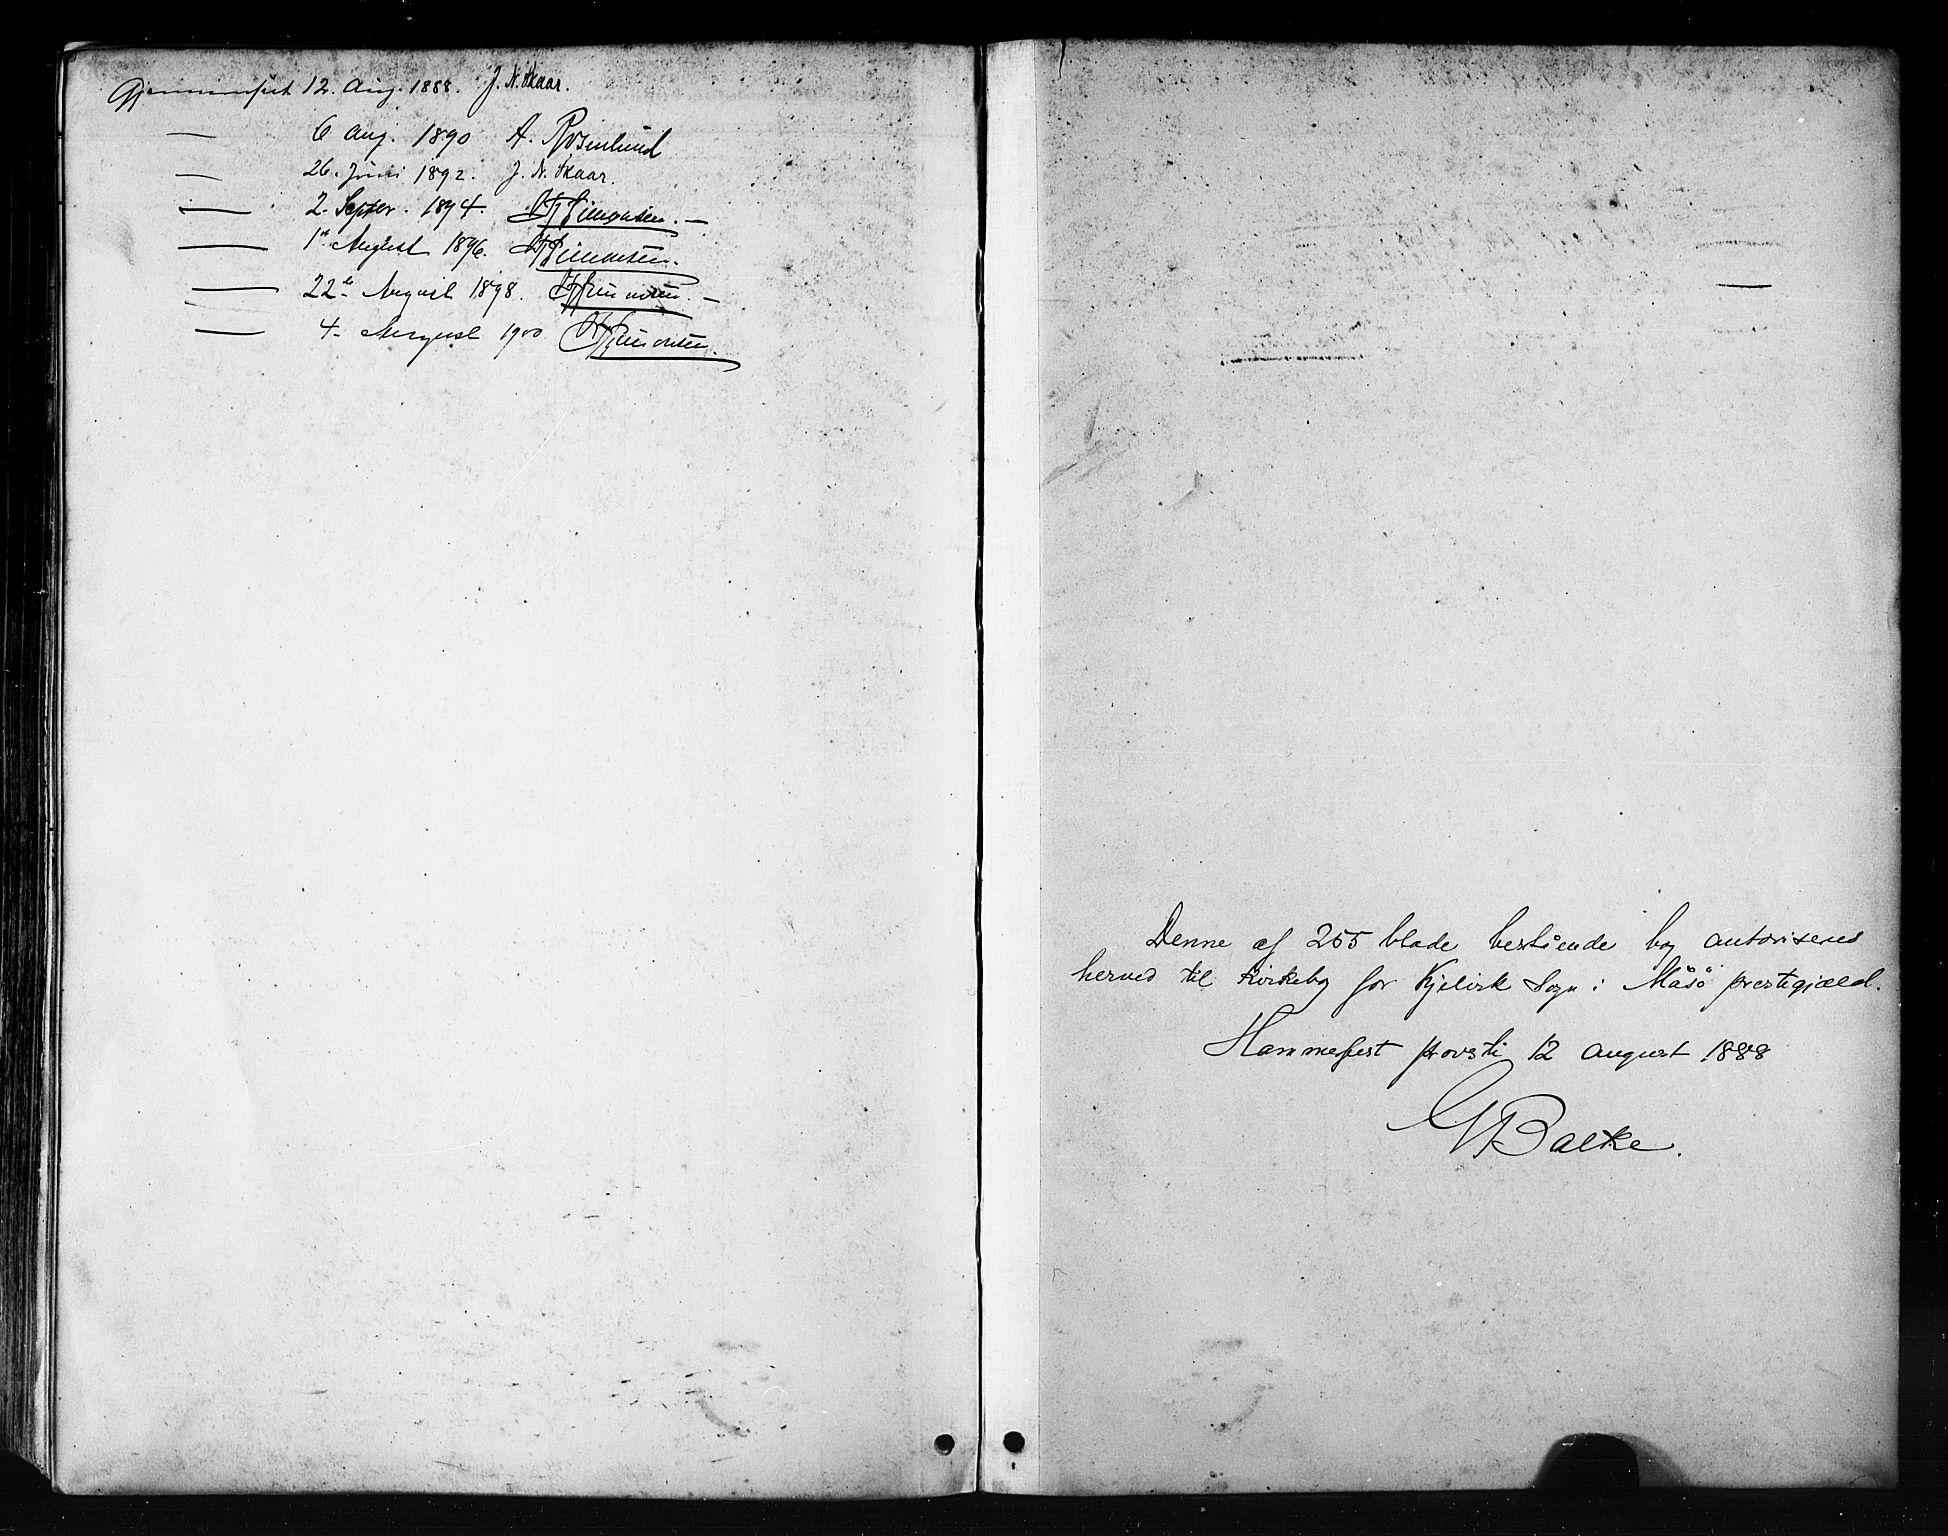 Gjennemseet 12. Aug. 1888. J. N. Skaar.
— 6 Aug. 1890 A. Rosenlund
— 26. Juni 1892. J. N. Skaar.
— 2. Septbr. 1894. Simonsen. —
— 1st August 1896. Simonsen.
— 22de August 1898. Simonsen. —
— 4. August 1900 Simonsen.
Denne af 255 blade bestående bog autoriseres
herved til kirkebog for Kjelvik Sogn i Måsö prestegjæld.
Hammefest provsti 12 august 1888
G Balke.